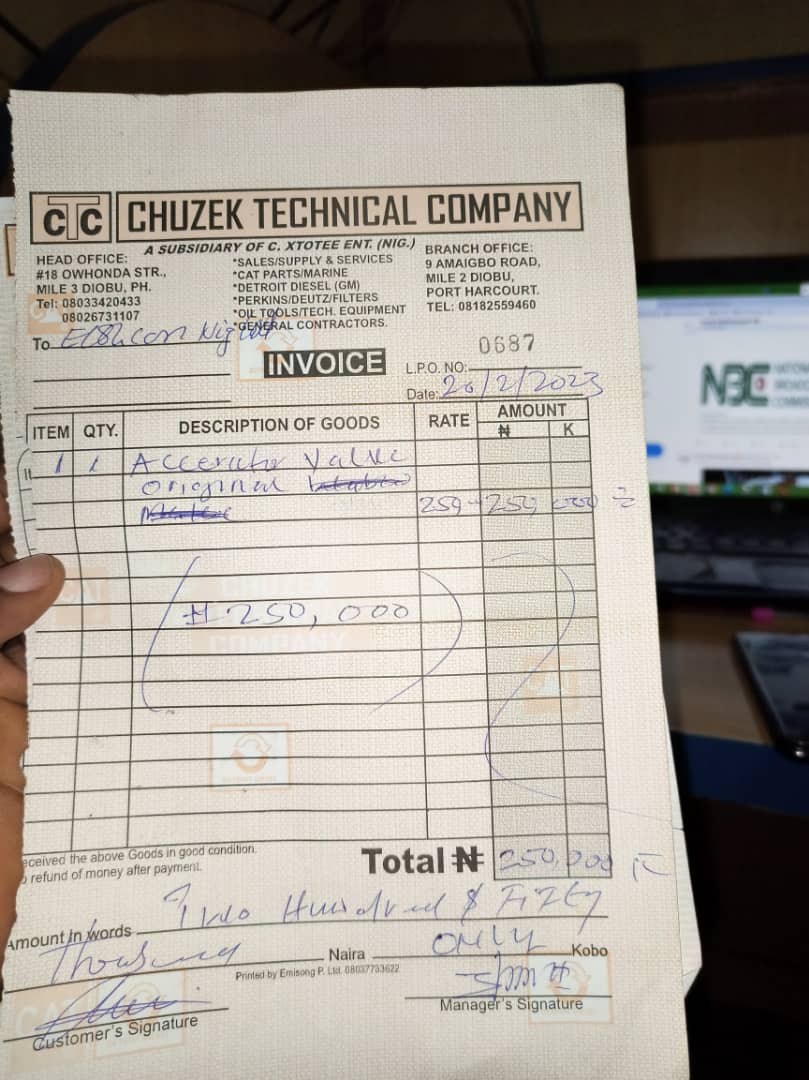 CTC CHUZEK TECHNICAL COMPANY
A SUBSIDIARY OF C. XTOTEE ENT. (NIG.)
HEAD OFFICE:
#18 OWHONDA STR.,
MILE 3 DIOBU, PH.
Tel: 08033420433
08026731107
*SALES/SUPPLY & SERVICES
*CAT PARTS/MARINE
*DETROIT DIESEL (GM)
*PERKINS/DEUTZ/FILTERS
*OIL TOOLS/TECH. EQUIPMENT
*GENERAL CONTRACTORS.
BRANCH OFFICE:
9 AMAIGBO ROAD,
MILE 2 DIOBU,
PORT HARCOURT.
TEL: 08182559460
To
INVOICE
0687
L.P.O. NO:
Date: 20/2/2023
ITEM QTY. DESCRIPTION OF GOODS RATE AMOUNT
₦ K
1 1 Valve
original
250 250,000
₦250,000
CHUZEK
COMPANY
eceived the above Goods in good condition.
o refund of money after payment.
Total ₦ 250,000
Amount in words Two Hundred & Fifty
Thousand Naira ONLY Kobo
Printed by Emisong P. Ltd. 08037733622
Customer's Signature
Manager's Signature
NBC